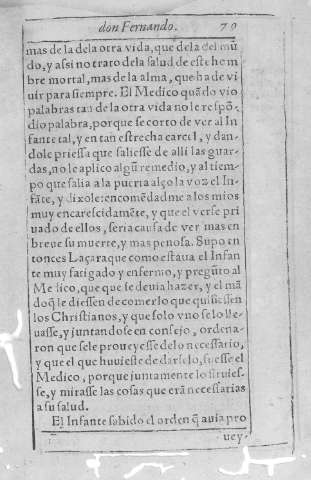 don Fernando. 70
mas de la dela otra vida, que dela del mũ
do, y assi no trato dela salud de este hom
bre mortal, mas de la alma, que ha de vi
uir para siempre. El Medico quãdo vio
palabras tan de la otra vida no le respõ-
dio palabra, porque se corto de ver al In
fante tal, y en tan estrecha carcel, y dan-
dole priessa que saliesse de alli las guar-
das, no le aplico algũ remedio, y al tiem-
po que salia a la puerta alço la voz el In-
fãte, y dixole: encomẽdadme a los mios
muy encarescidamẽte, y que el verse pri
uado de ellos, seria causa de ver mas en
breue su muerte, y mas penosa. Supo en
tonces Laçaraque como estaua el Infan
te muy fatigado y enfermo, y pregũto al
Medico, que que se deuia hazer, y el mã
doq̃ le diessen de comer lo que quisiessen
los Christianos, y que solo vno se lo lle-
uasse, y juntandose en consejo, ordena-
ron que sele proueyesse de lo necessario,
y que el que huuieste de darselo, fuesse el
Medico, porque juntamente lo siruies-
se, y mirasse las cosas que erã necessarias
a su salud.
El Infante sabido el orden q̃ auia pro
uey-